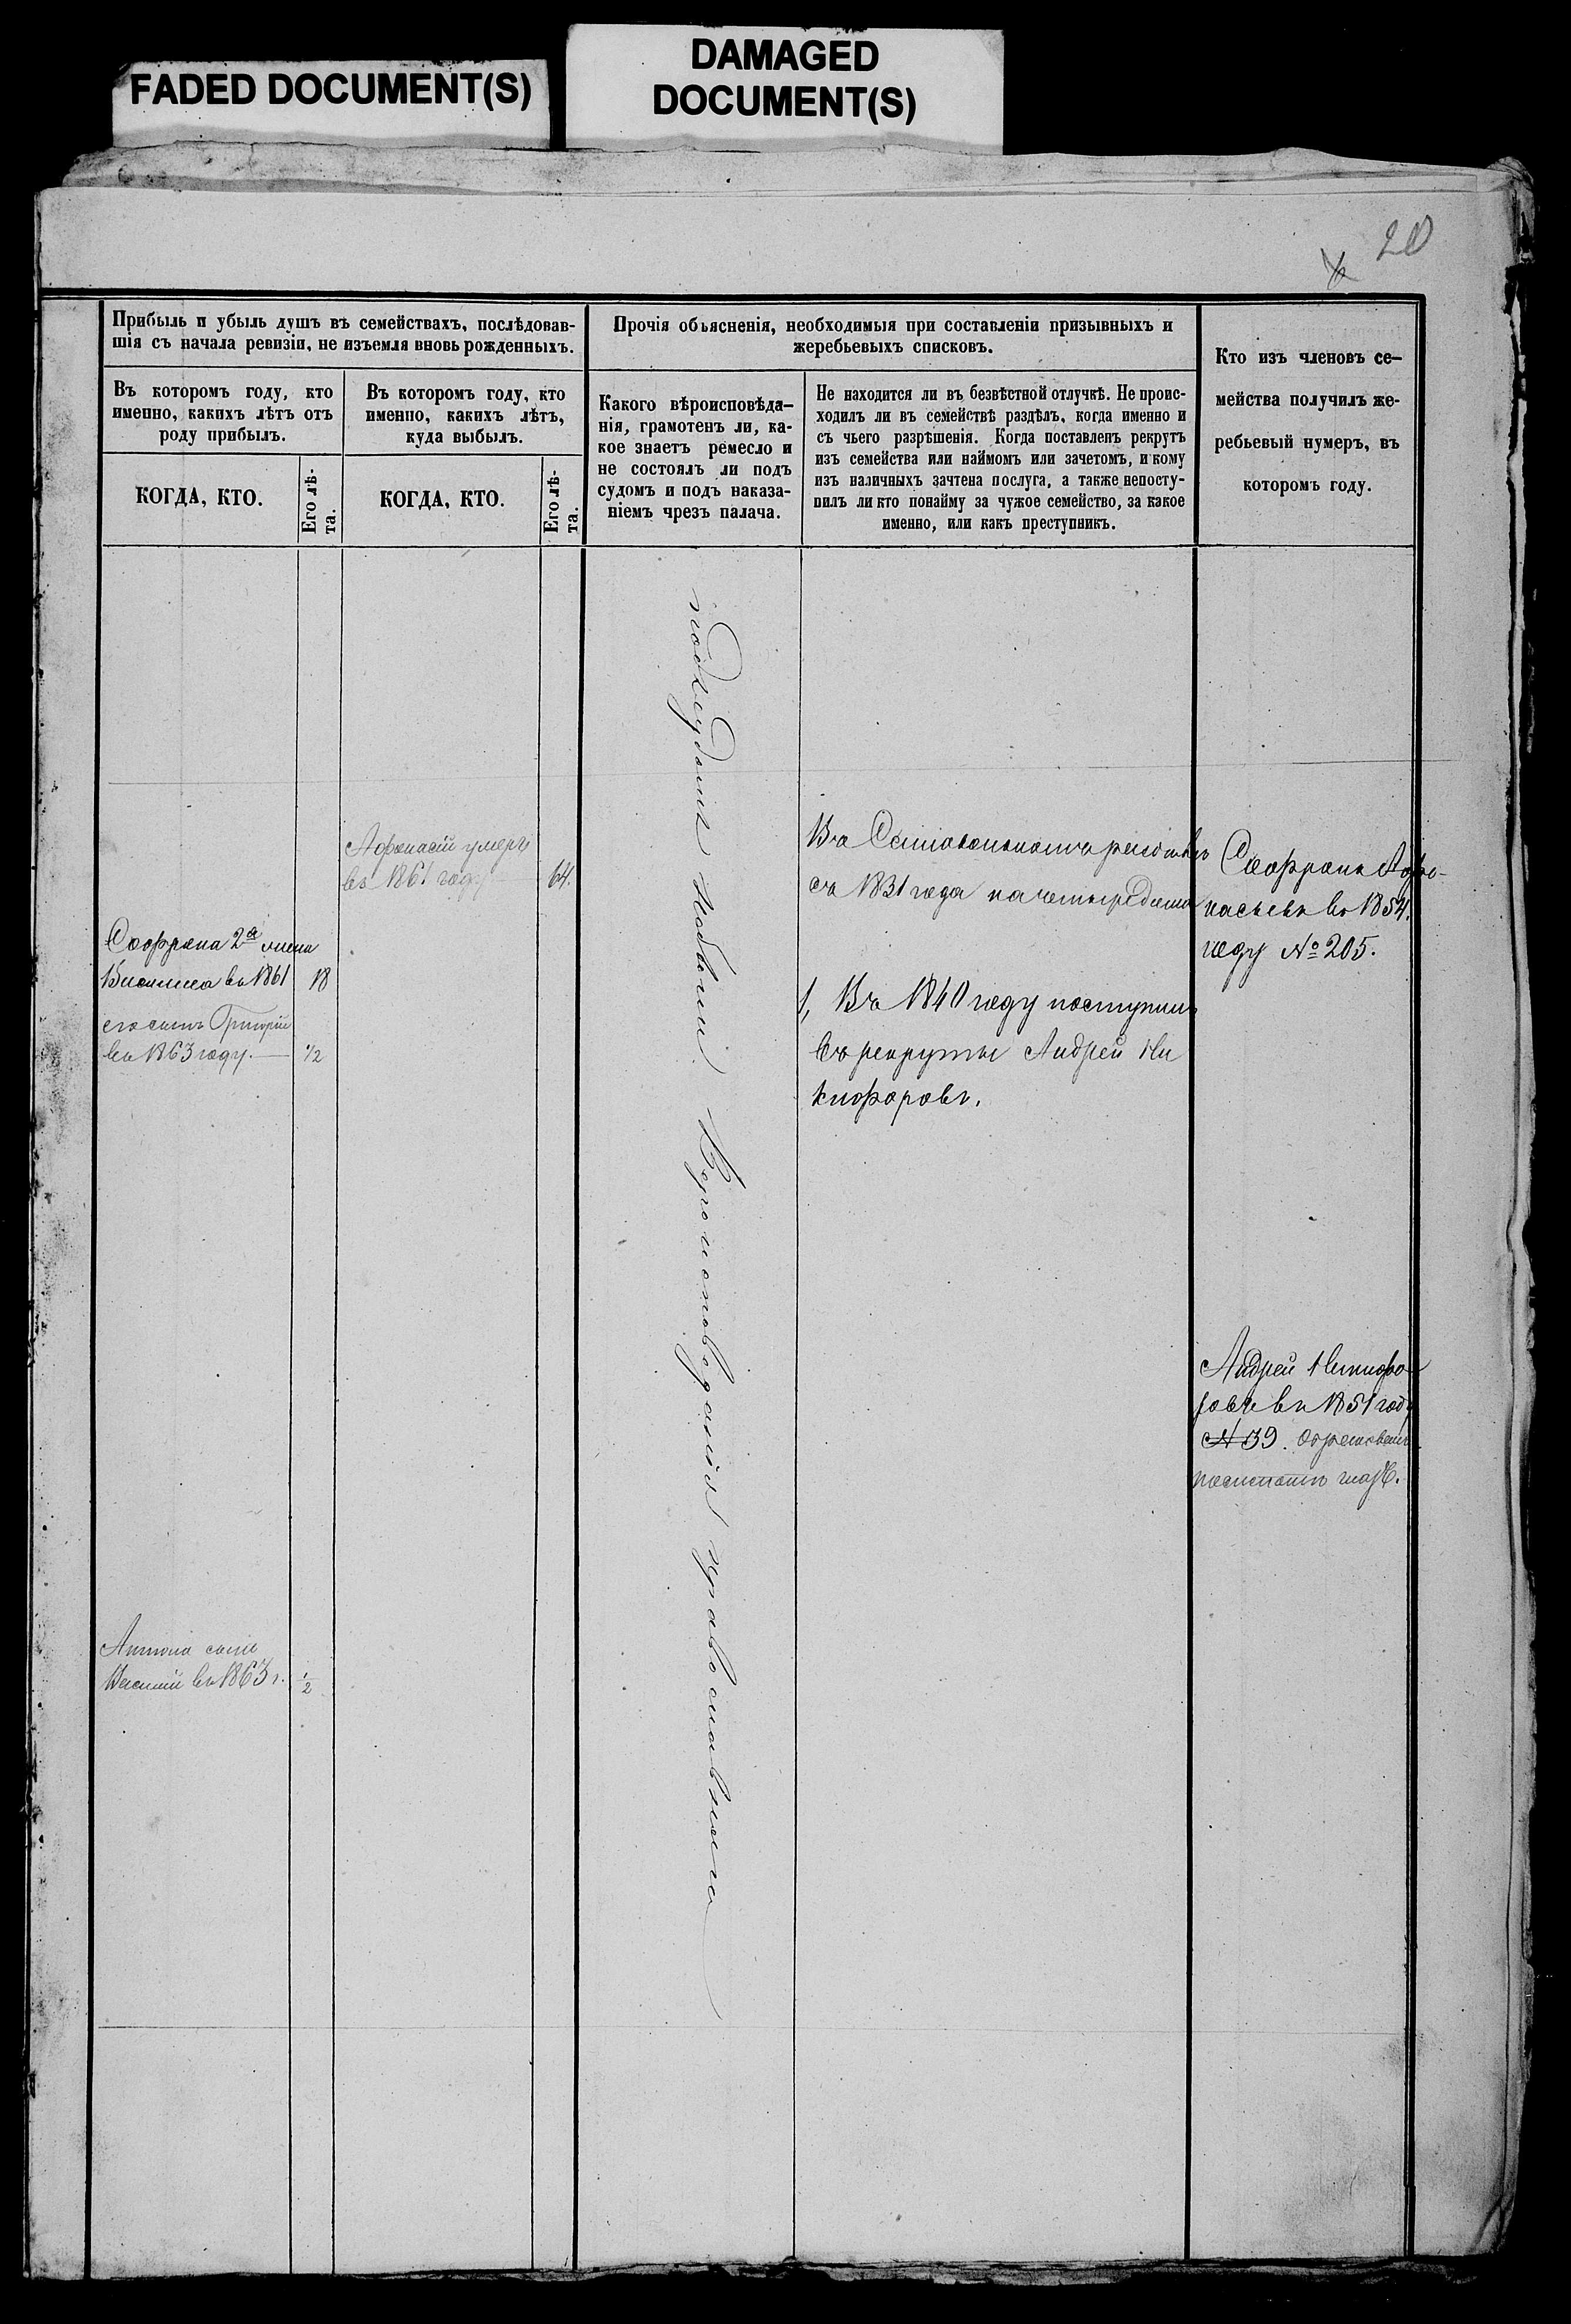 FADED DOCUMENT(S)
DAMAGED
DOCUMENT(S)
20
Прибыль и убыль душъ въ семействахъ, послѣдовав-
шія съ начала ревизіи, не изъемля вновь рожденныхъ.
Въ которомъ году, кто
именно, какихъ лѣтъ отъ
роду прибылъ.
КОГДА, КТО.
Его лѣ-
та.
Въ которомъ году, кто
именно, какихъ лѣтъ,
куда выбылъ.
КОГДА, КТО.
Его лѣ-
та.
Прочія объясненія, необходимыя при составленіи призывныхъ и
жеребьевыхъ списковъ.
Какого вѣроисповѣда-
нія, грамотенъ ли, ка-
кое знаетъ ремесло и
не состоялъ ли подъ
судомъ и подъ наказа-
ніемъ чрезъ палача.
Не находится ли въ безвѣстной отлучкѣ. Не проис-
ходилъ ли въ семействѣ раздѣлъ, когда именно и
съ чьего разрѣшенія. Когда поставленъ рекрутъ
изъ семейства или наймомъ или зачетомъ, и кому
изъ наличныхъ зачтена послуга, а также непосту-
пилъ ли кто понайму за чужое семейство, за какое
именно, или какъ преступникъ.
Кто изъ членовъ се-
мейства получилъ же-
ребьевый нумеръ, въ
которомъ году.
Афонасій умеръ
въ 1861 году 64.
Софрона 2а жена
въ 1861 18
его сынъ Григорій
въ 1863 году. 1/2
Антона сынъ
Василій въ 1863 г. 1/2
подсудомъ небыли Вероисповеданія православнаго
Въ
съ 1831 года
1, Въ 1840 году поступилъ
въ рекруты Андрей Ни
кифоровъ.
Софронъ Афо-
насьевъ въ 1854.
году № 205.
Андрей Никифо-
ровъ въ 1851 году
№ 39.